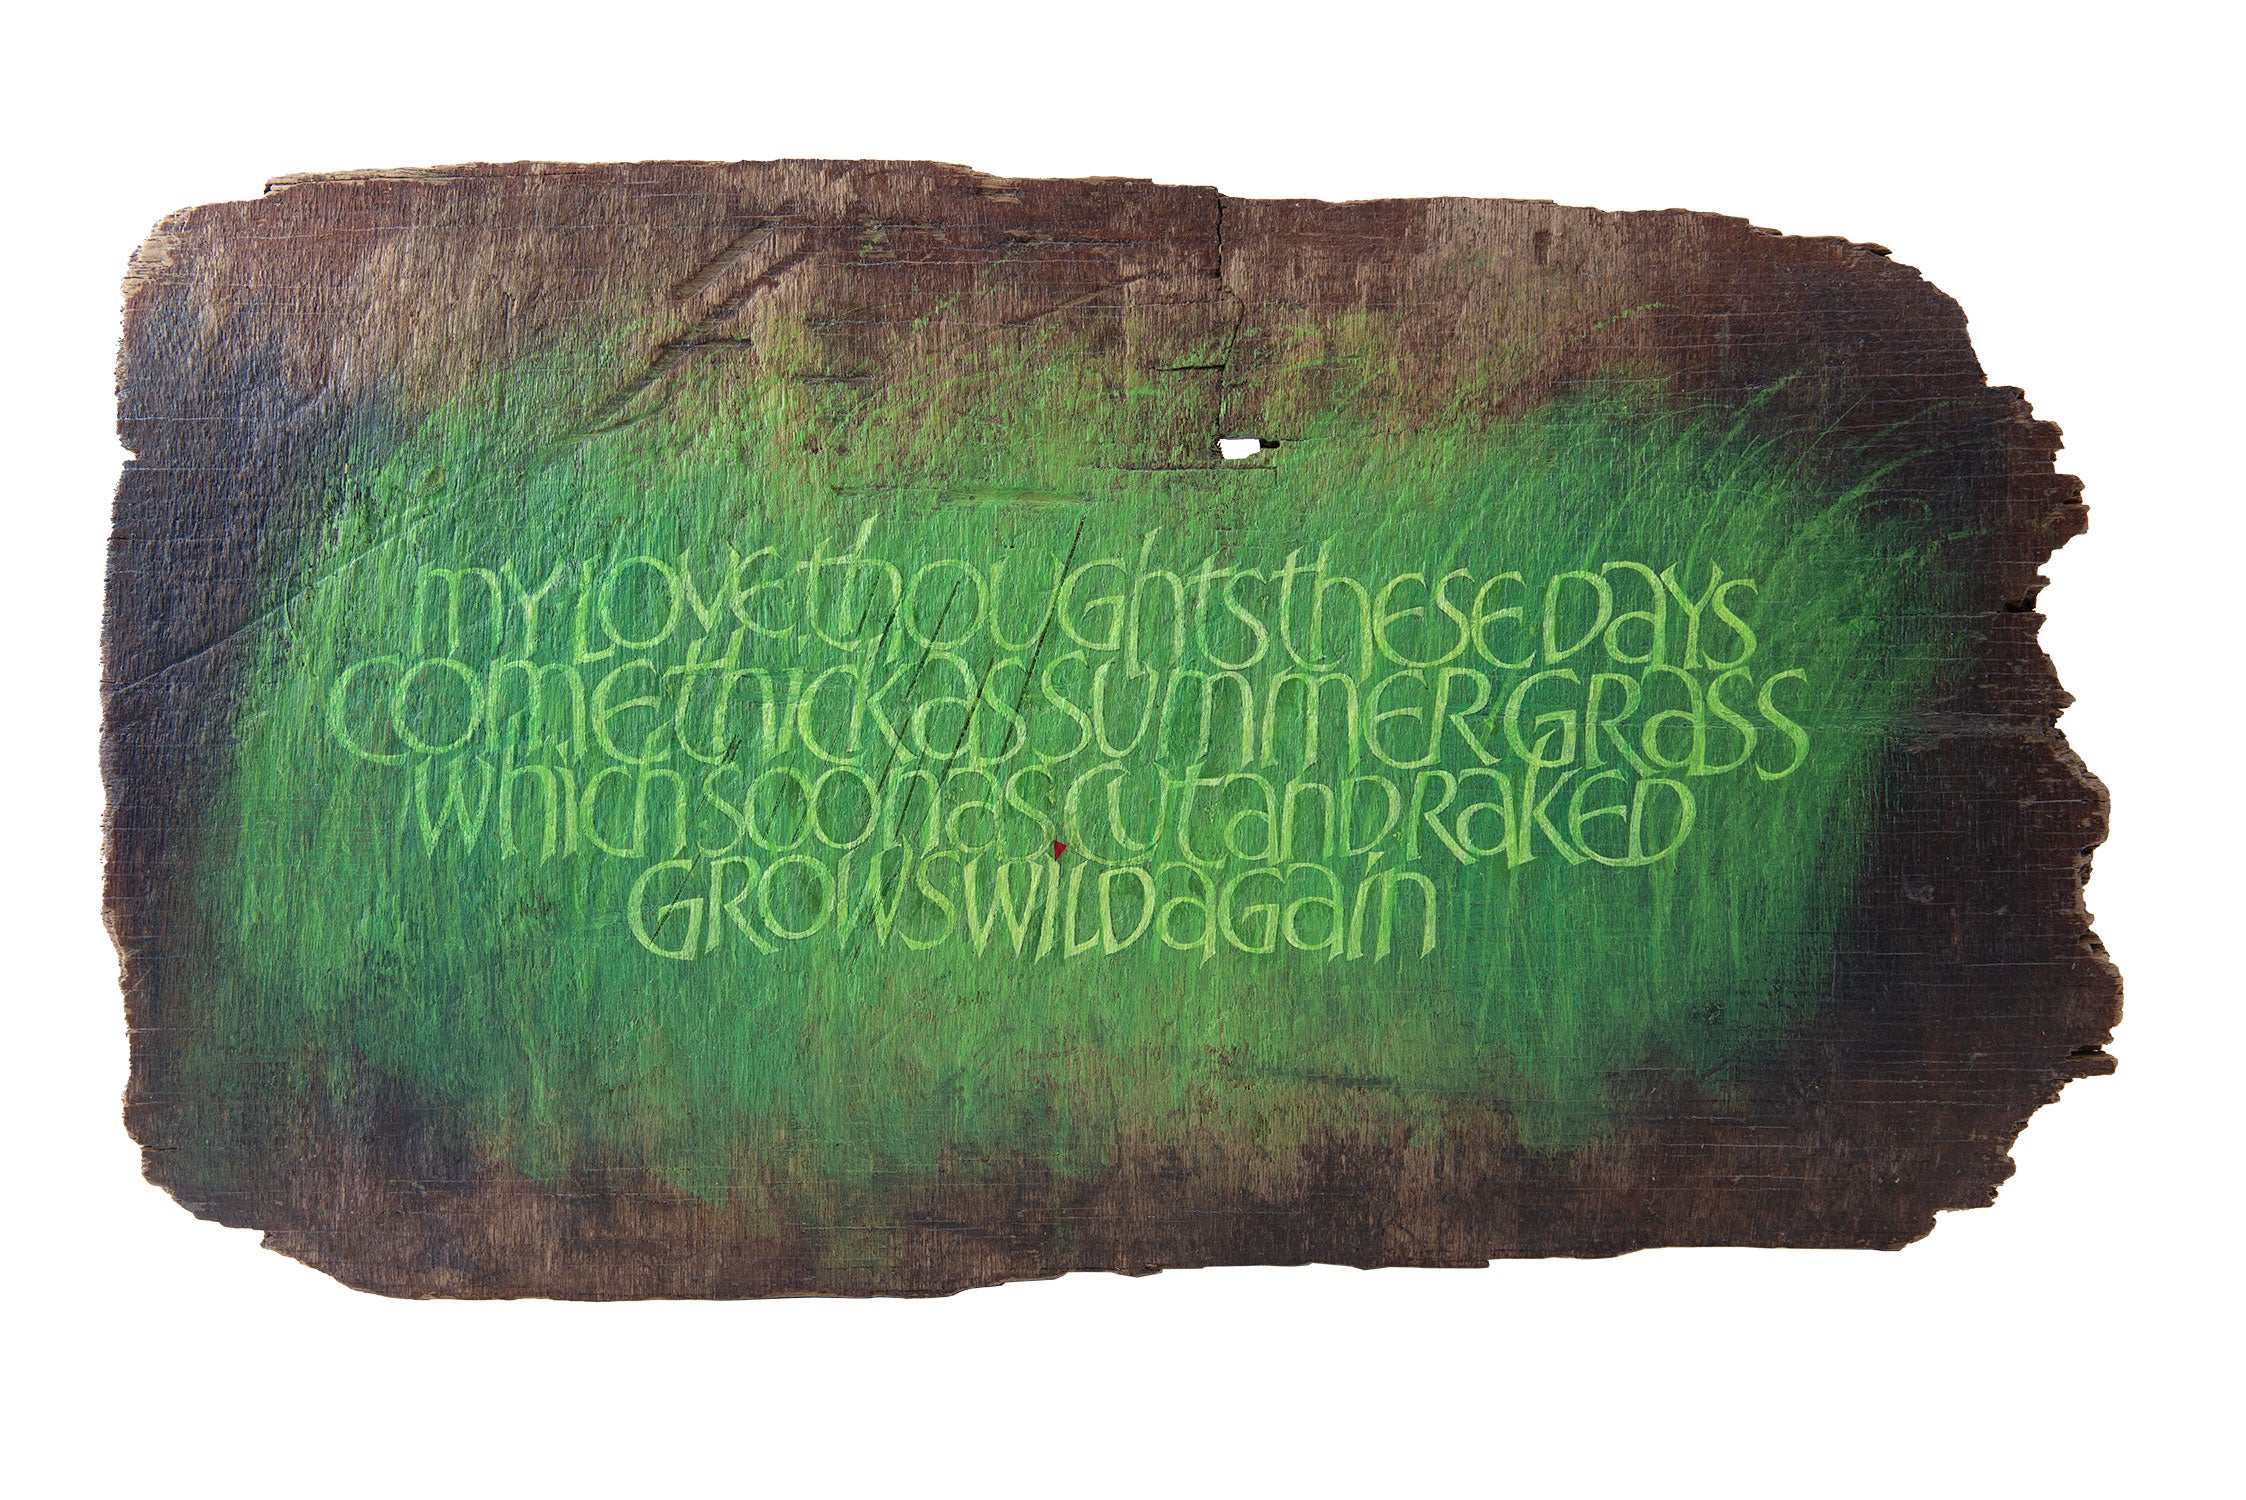 my love thoughts these days
come thick as summer grass
which soon as cut and raked
grows wild again